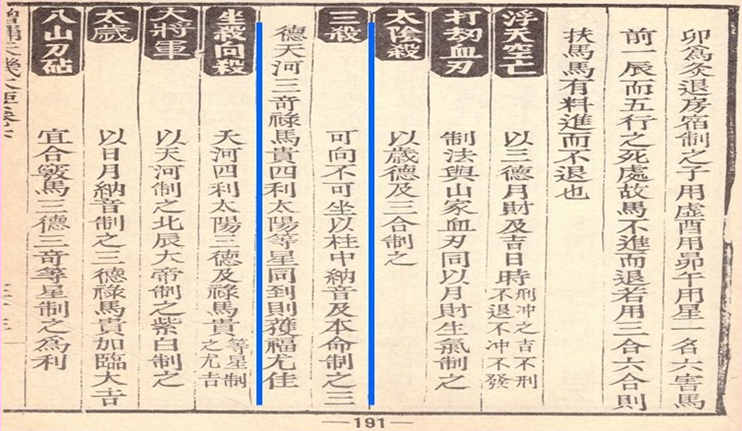 卯為灸退房宿制之子用虛酉用昴午用星一名六害馬
前一辰而五行之死處故馬不進而退若用三合六合則
扶馬馬有料進而不退也
浮天空亡 以三德月財及吉日時刑冲之吉不刑不退不冲不發
打刼血刃 制法與山家血刃同以月財生氣制之
太陰殺 以歲德及三合制之
三殺 可向不可坐以柱中納音及本命制之三
德天河三奇祿馬貴四利太陽等星同到則獲福尤佳
坐殺向殺 天河四利太陽三德及祿馬貴等星制之尤吉
大將軍 以天河制之北辰大帝制之紫白制之
太歲 以日月納音制之三德祿馬貴加臨大吉
八山刀砧 宜合竅馬三德三奇等星制之為利
—191—